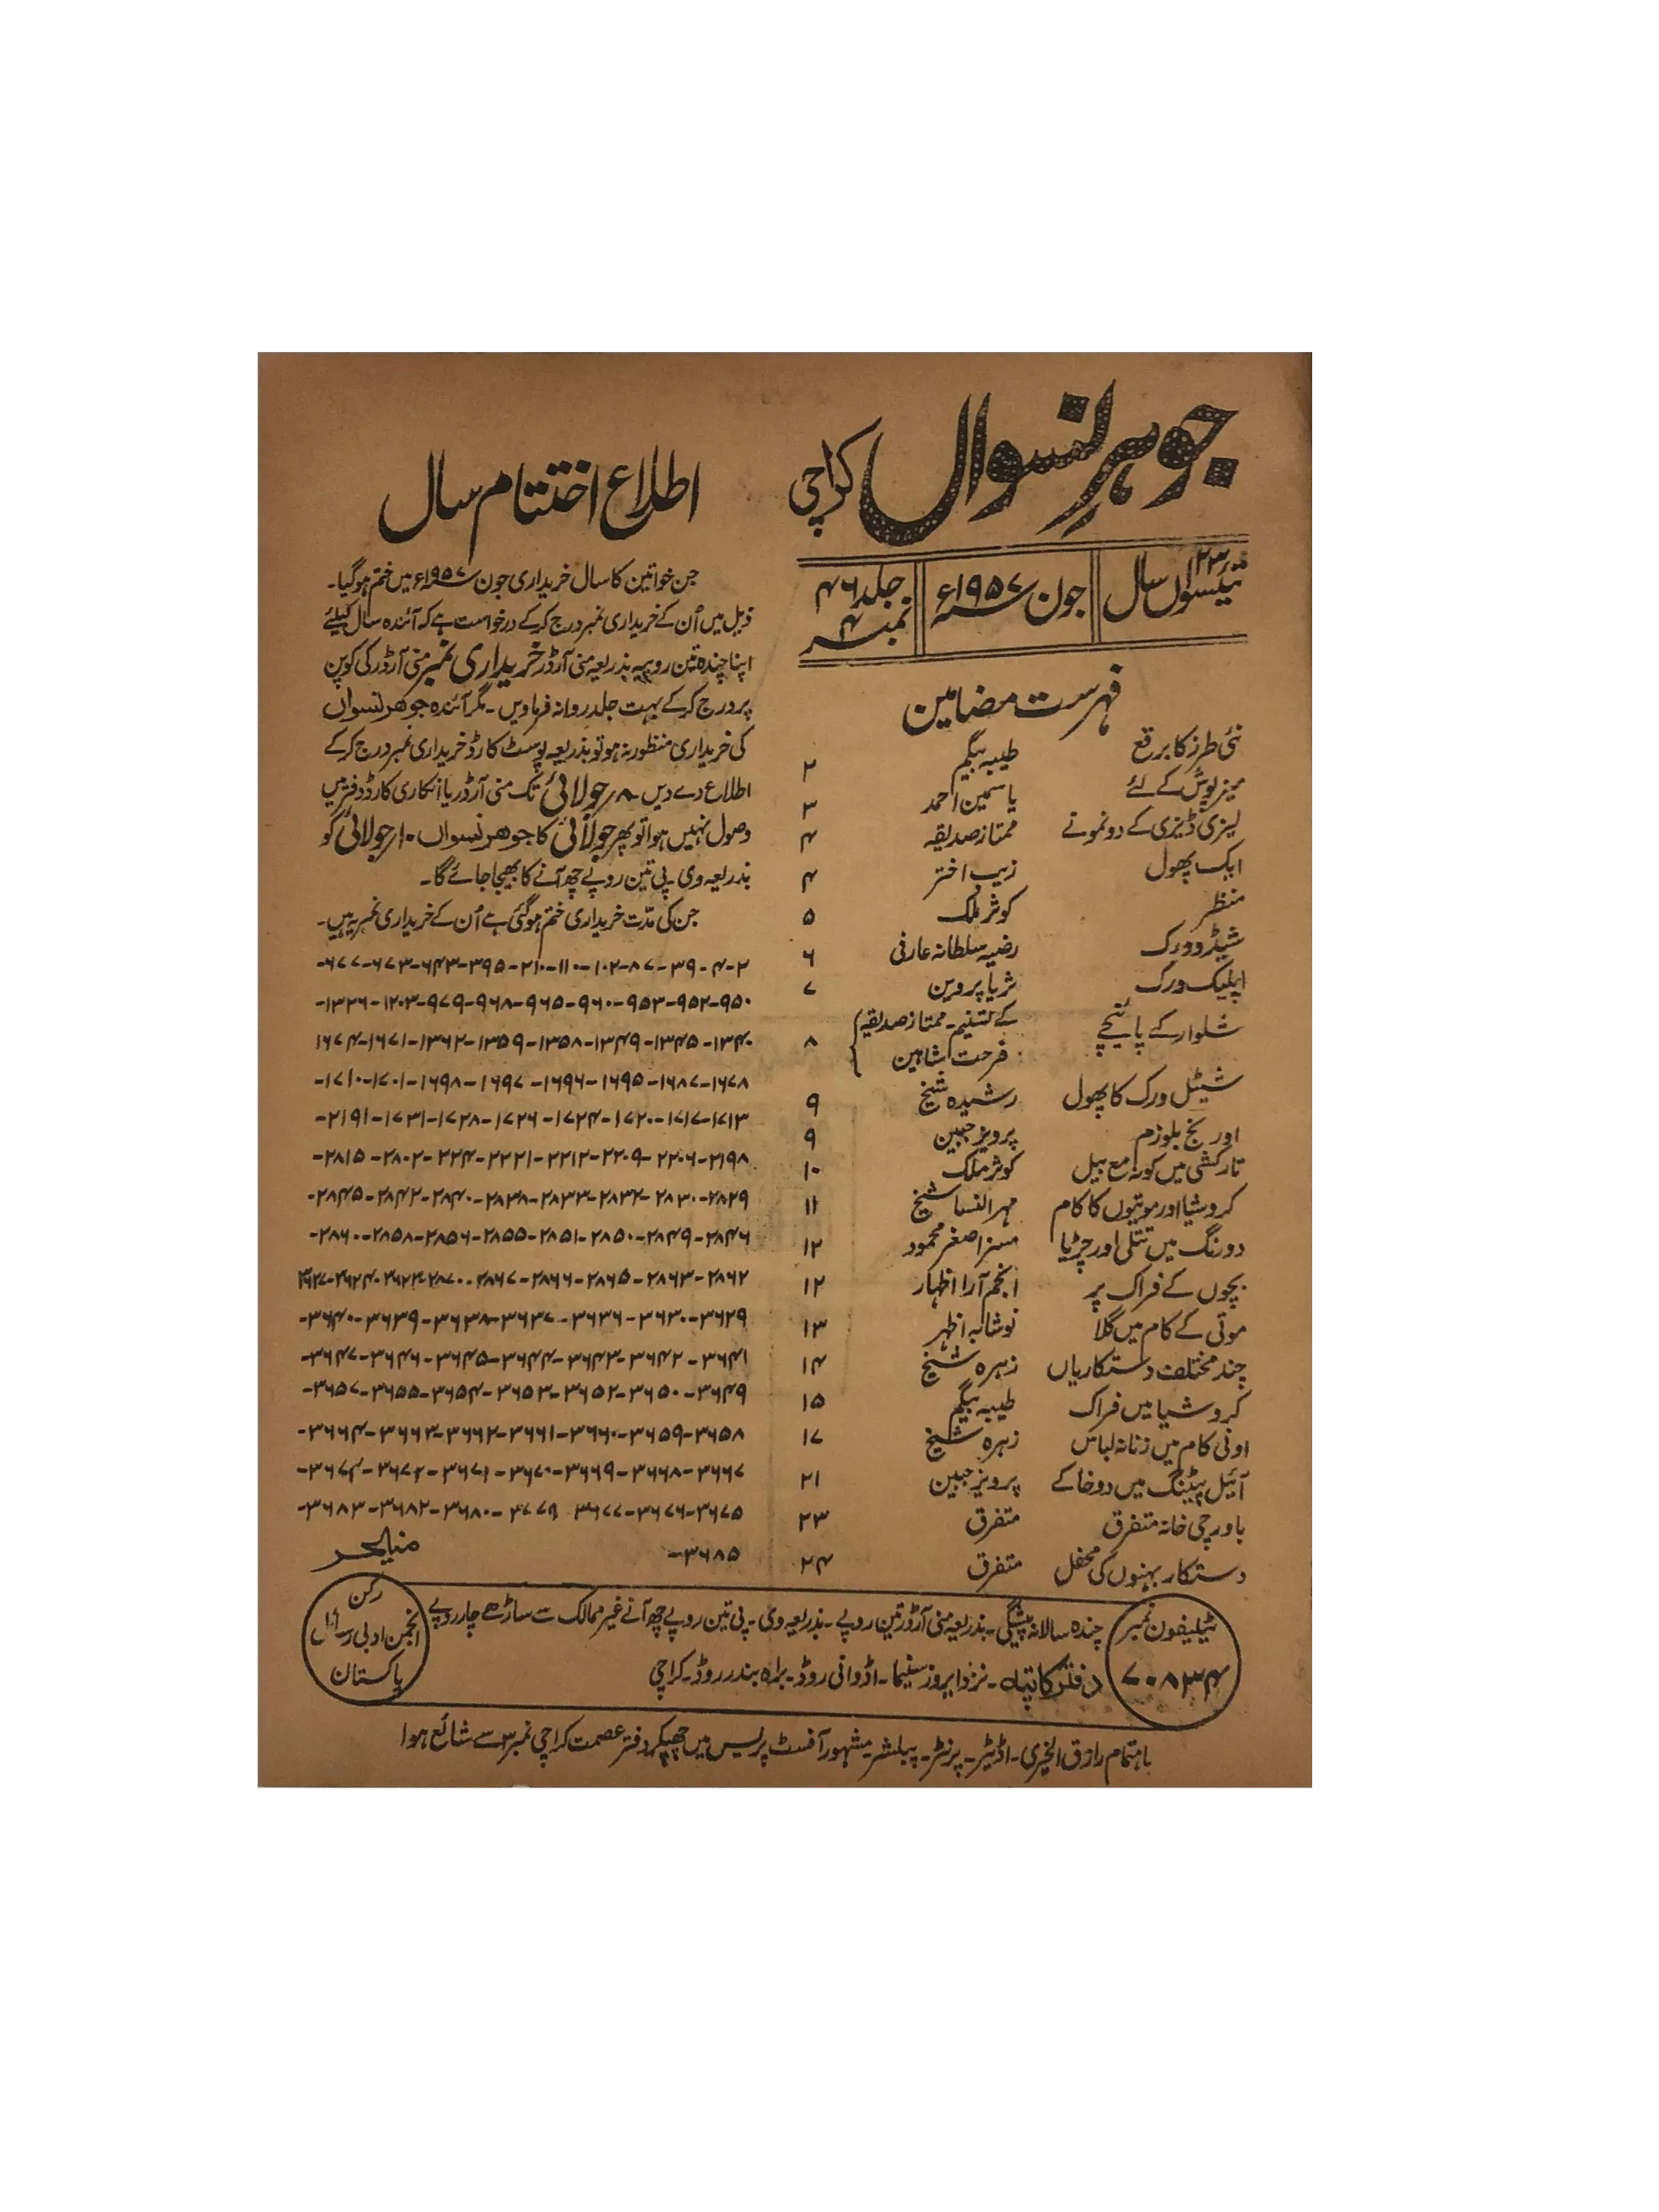 جوہرِ نسواں کراچی
۲۳
تیئیسواں سال
جون ۱۹۵۷ء
جلد ۴۶
نمبر ۴
فہرست مضامین
نئی طرز کا برقع طیبہ بیگم ۲
میزپوش کے لئے یاسمین احمد ۳
لیزی ڈیزی کے دو نمونے ممتاز صدیقہ ۴
ایک پھول زیب اختر ۴
منظر کوثر ملک ۵
شیڈو ورک رضیہ سلطانہ عارفی ۶
اپلیک ورک ثریا پروین ۷
شلوار کے پائنچے کے تسنیم۔ ممتاز صدیقہ ۸
فرحت شاہین
شیٹل ورک کا پھول رشیدہ شیخ ۹
اورنج بلوزم پرویز جبین ۹
تارکشی میں کونہ مع بیل کوثر ملک ۱۰
کروشیا اور موتیوں کا کام مہر النسا شیخ ۱۱
دو رنگ میں تتلی اور چڑیا مسز اصغر محمود ۱۲
بچوں کے فراک پر انجم آرا اظہار ۱۲
موتی کے کام میں گلا نوشابہ اظہر ۱۳
چند مختلف دستکاریاں زہرہ شیخ ۱۴
کروشیا میں فراک طیبہ بیگم ۱۵
اونی کام میں زنانہ لباس زہرہ شیخ ۱۷
آئیل پینٹنگ میں دو خاکے پرویز جبین ۲۱
باورچی خانہ متفرق متفرق ۲۳
دستکار بہنوں کی محفل متفرق ۲۴
اطلاع اختتام سال
جن خواتین کا سال خریداری جون ۱۹۵۷ء میں ختم ہو گیا۔
ذیل میں اُن کے خریداری نمبر درج کر کے درخواست ہے کہ آئندہ سال کیلئے
اپنا چندہ تین روپیہ بذریعہ منی آرڈر خریداری نمبر منی آرڈر کی کوپن
پر درج کر کے بہت جلد روانہ فرما دیں۔ مگر آئندہ جوھر نسواں
کی خریداری منظور نہ ہو تو بذریعہ پوسٹ کارڈ خریداری نمبر درج کر کے
اطلاع دے دیں ۸ر جولائی تک منی آرڈر یا انکاری کارڈ دفتر میں
وصول نہیں ہوا تو پھر جولائی کا جوھر نسواں ۱۰ر جولائی کو
بذریعہ وی۔ پی تین روپے چھ آنے کا بھیجا جائے گا۔
جن کی مدّت خریداری ختم ہو گئی ہے اُن کے خریداری نمبر یہ ہیں۔
۲-۴-۳۹-۸۷-۱۰۲-۱۱۰-۲۱۰-۳۹۵-۶۴۳-۶۷۳-۶۷۷-
۹۵۰-۹۵۲-۹۵۳-۹۶۰-۹۶۵-۹۶۸-۹۷۹-۱۲۰۳-۱۳۲۶-
۱۳۴۰-۱۳۴۵-۱۳۴۹-۱۳۵۸-۱۳۵۹-۱۳۶۲-۱۶۷۱-۱۶۷۴
۱۶۷۸-۱۶۸۷-۱۶۹۵-۱۶۹۶-۱۶۹۷-۱۶۹۸-۱۷۰۱-۱۷۱۰-
۱۷۱۳-۱۷۱۷-۱۷۲۰-۱۷۲۴-۱۷۲۶-۱۷۲۸-۱۷۳۱-۲۱۹۱-
۲۱۹۸-۲۲۰۶-۲۲۰۹-۲۲۱۲-۲۲۲۱-۲۲۴-۲۸۰۲-۲۸۱۵-
۲۸۲۹-۲۸۳۰-۲۸۳۲-۲۸۳۳-۲۸۳۸-۲۸۴۰-۲۸۴۲-۲۸۴۵-
۲۸۴۶-۲۸۴۹-۲۸۵۰-۲۸۵۱-۲۸۵۵-۲۸۵۶-۲۸۵۸-۲۸۶۰-
۲۸۶۲-۲۸۶۳-۲۸۶۵-۲۸۶۶-۲۸۶۷-۲۸۷۰-۳۶۲۳-۳۶۲۴-۳۶۲۷
۳۶۲۹-۳۶۳۰-۳۶۳۶-۳۶۳۷-۳۶۳۸-۳۶۳۹-۳۶۴۰-
۳۶۴۱-۳۶۴۲-۳۶۴۳-۳۶۴۴-۳۶۴۵-۳۶۴۶-۳۶۴۷-
۳۶۴۹-۳۶۵۰-۳۶۵۲-۳۶۵۳-۳۶۵۴-۳۶۵۵-۳۶۵۷-
۳۶۵۸-۳۶۵۹-۳۶۶۰-۳۶۶۱-۳۶۶۲-۳۶۶۳-۳۶۶۴-
۳۶۶۷-۳۶۶۸-۳۶۶۹-۳۶۷۰-۳۶۷۱-۳۶۷۲-۳۶۷۴-
۳۶۷۵-۳۶۷۶-۳۶۷۷ ۳۷۷۹-۳۶۸۰-۳۶۸۲-۳۶۸۳-
۳۶۸۵-
منیجر
ٹیلیفون نمبر
۷۰۸۳۴
چندہ سالانہ پیشگی۔ بذریعہ منی آرڈر تین روپے۔ بذریعہ وی۔ پی تین روپے چھ آنے غیر ممالک سے ساڑھے چار روپے
دفتر کا پتہ۔ نزد ایروز سنیما۔ اڈوانی روڈ۔ براہ بندر روڈ۔ کراچی
رکن
انجمن ادبی رسائل
پاکستان
باہتمام رازق الخیری۔ اڈیٹر۔ پرنٹر۔ پبلشر۔ مشہور آفسٹ پریس میں چھپکر دفتر عصمت کراچی نمبر ۳ سے شائع ہوا